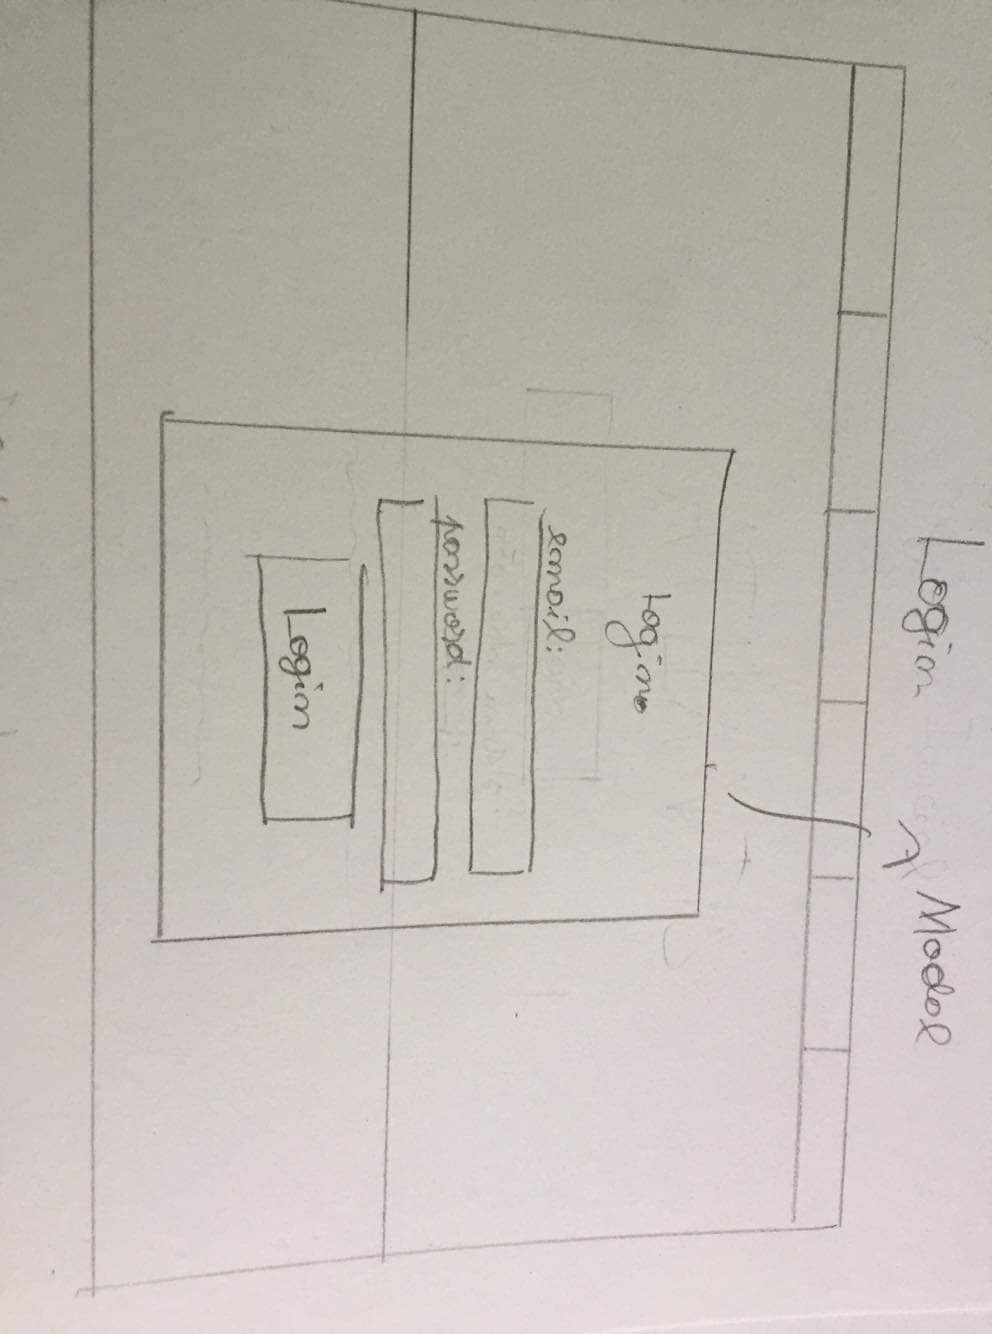 Login
Modal
Login
email:
password:
Login